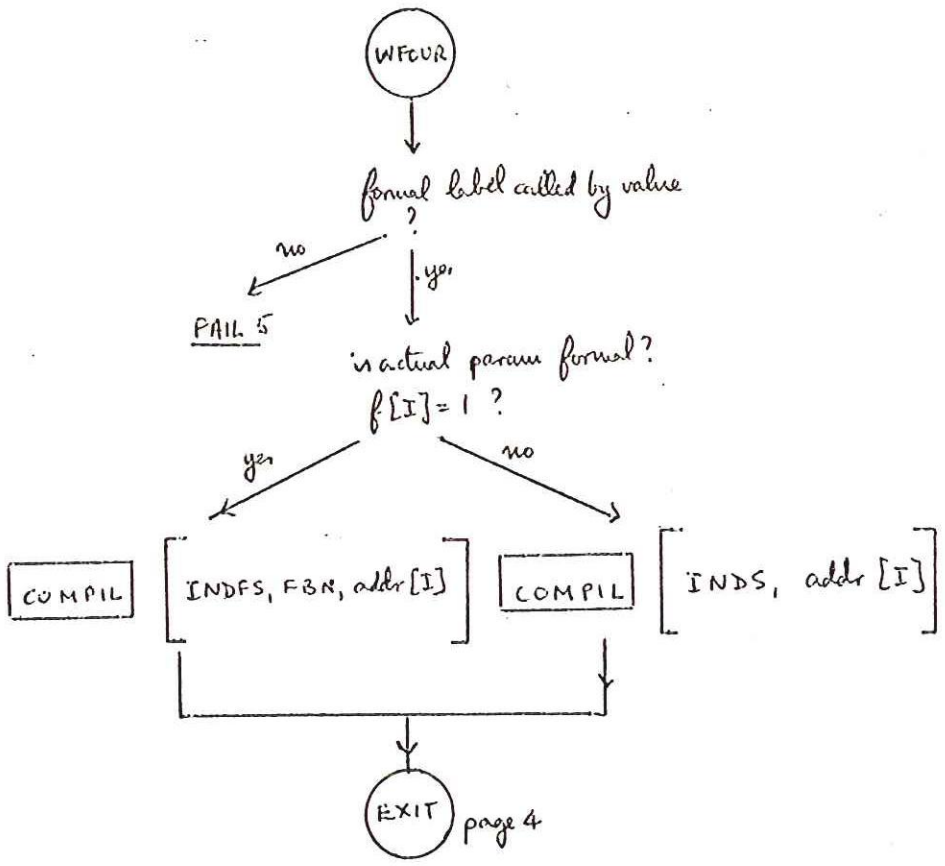 WFOUR
formal label called by value
?
no
yes
FAIL 5
is actual param formal?
f[I]=1 ?
yes
no
COMPIL
[INDFS, FBN, addr[I]]
COMPIL
[INDS, addr[I]]
EXIT
page 4